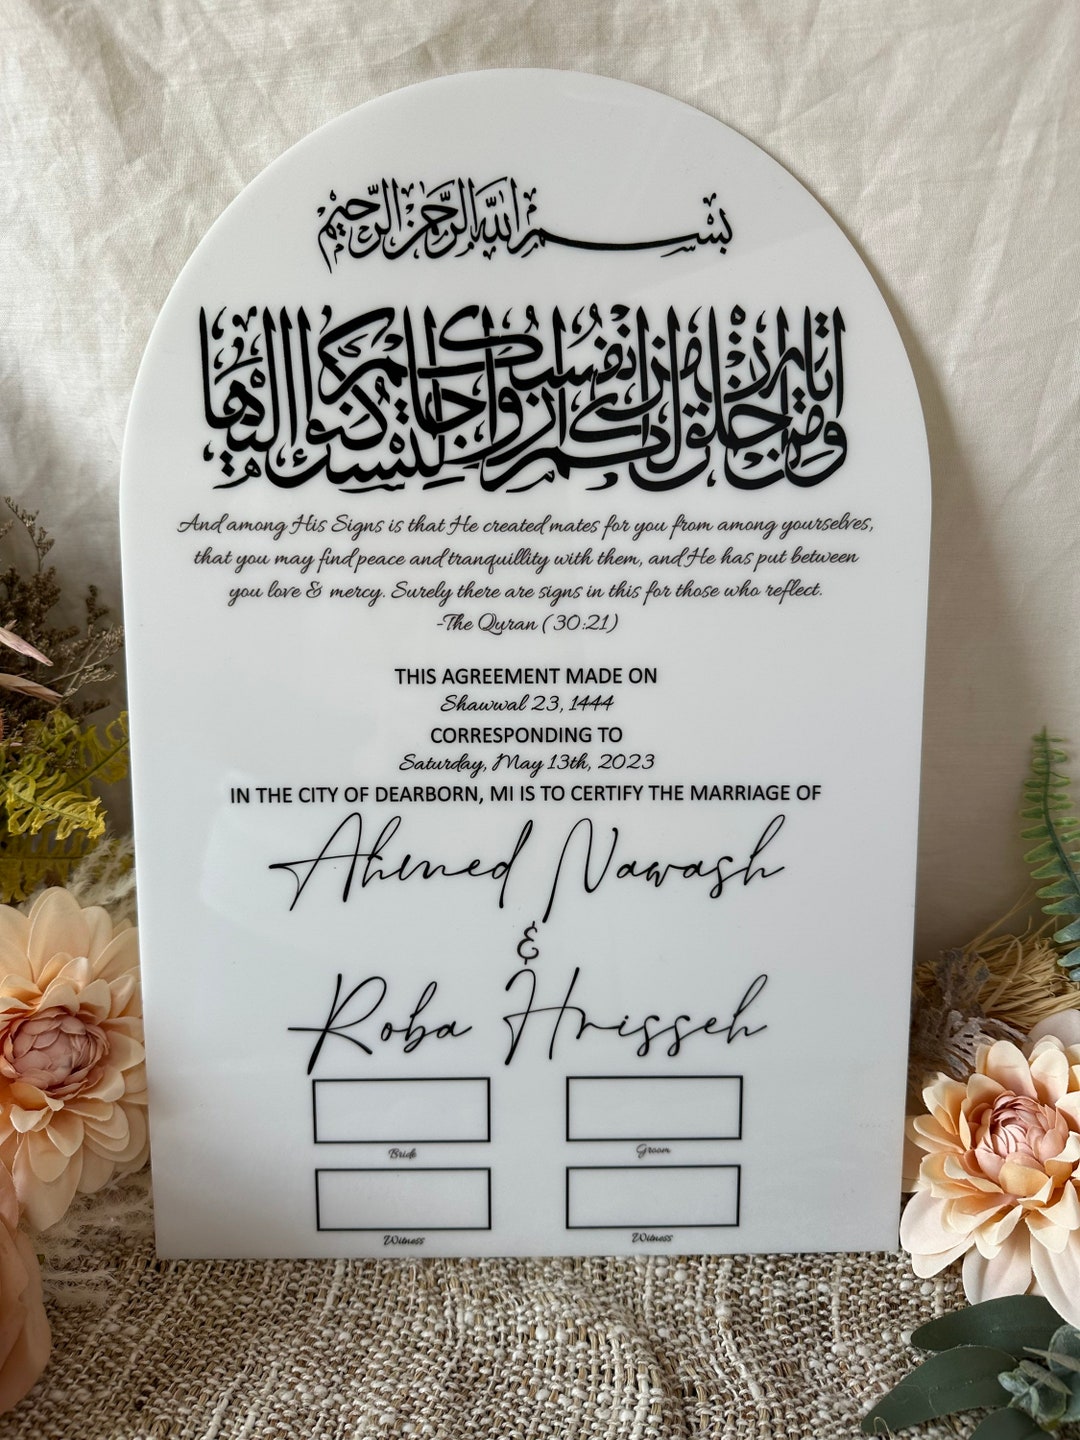 بسم الله الرحمن الرحيم
ومن آياته أن خلق لكم من أنفسكم أزواجا لتسكنوا إليها
And among His Signs is that He created mates for you from among yourselves,
that you may find peace and tranquillity with them, and He has put between
you love & mercy. Surely there are signs in this for those who reflect.
-The Quran (30:21)
THIS AGREEMENT MADE ON
Shawwal 23, 1444
CORRESPONDING TO
Saturday, May 13th, 2023
IN THE CITY OF DEARBORN, MI IS TO CERTIFY THE MARRIAGE OF
Ahmed Nawash
&
Roba Hrisseh
Bride
Groom
Witness
Witness